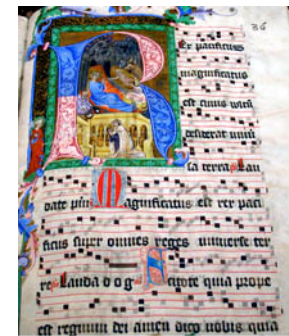 36
Rex pacificus
magnificatus
est cuius vultū
desiderat univ̄
sa terra Lau
date pūi Magnificatus est rex paci
ficus super omnes reges universe ter
re Lauda d o g Scitote quia prope
est regnum dei amen dico vobis quia